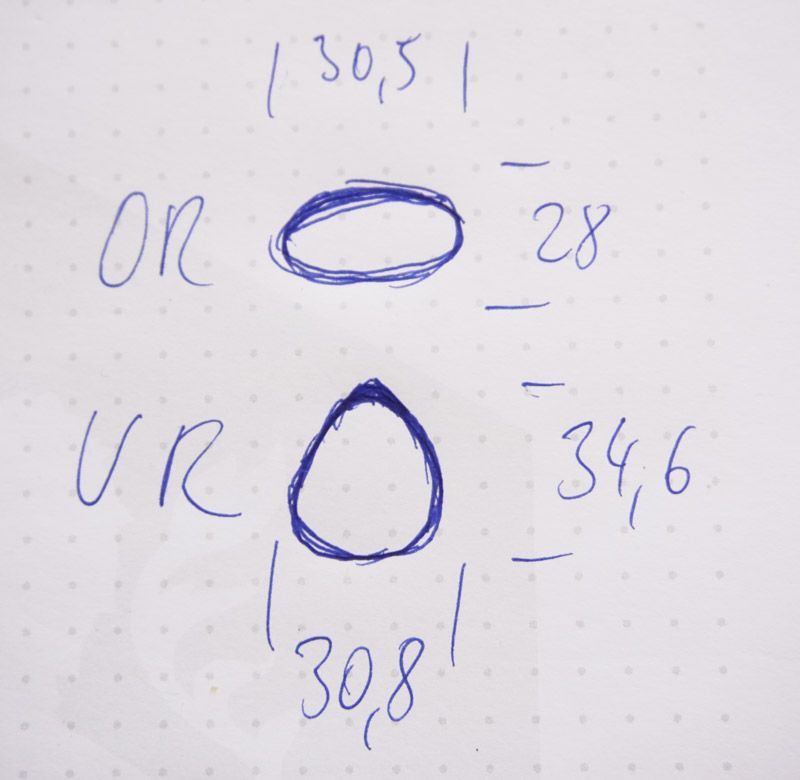 30,5
OR 28
UR 34,6
30,8